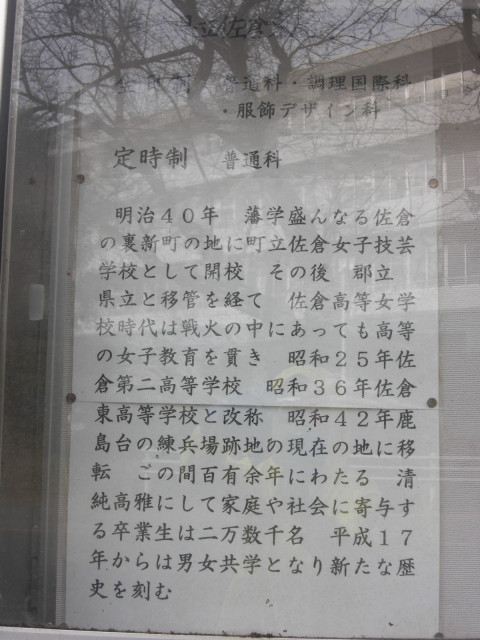 県立佐倉東
全日制 普通科・調理国際科
・服飾デザイン科
定時制 普通科
明治40年 藩学盛んなる佐倉
の裏新町の地に町立佐倉女子技芸
学校として開校 その後 郡立
県立と移管を経て 佐倉高等女学
校時代は戦火の中にあっても高等
の女子教育を貫き 昭和25年佐
倉第二高等学校 昭和36年佐倉
東高等学校と改称 昭和42年鹿
島台の練兵場跡地の現在の地に移
転 この間百有余年にわたる 清
純高雅にして家庭や社会に寄与す
る卒業生は二万数千名 平成17
年からは男女共学となり新たな歴
史を刻む